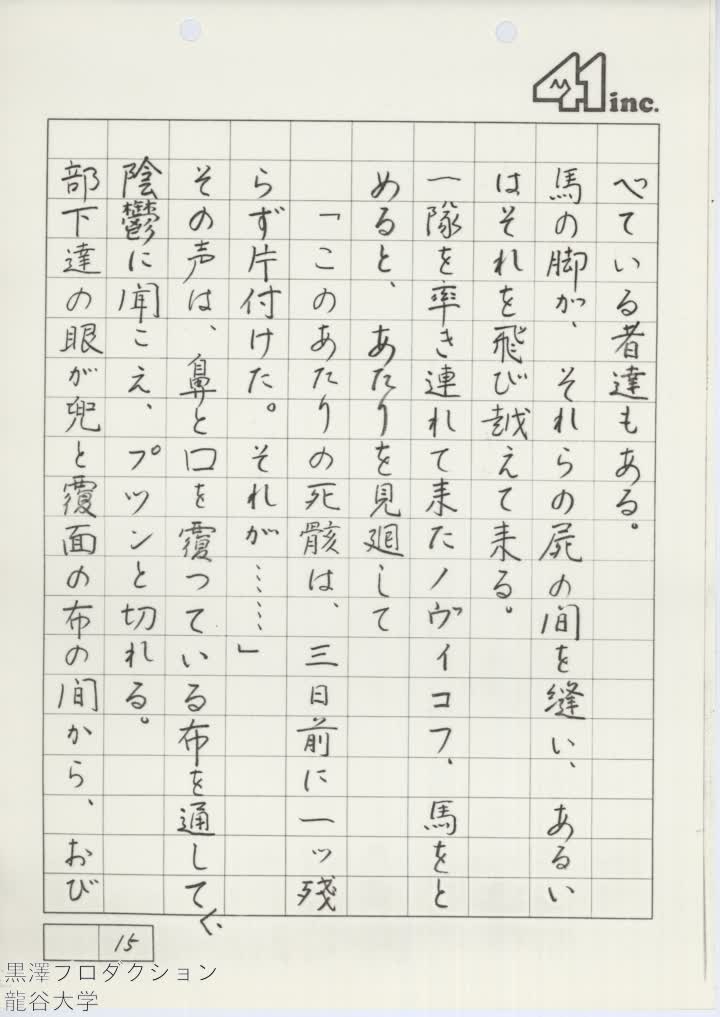 41 inc.
べている者達もある。
馬の脚が、それらの屍の間を縫い、あるい
はそれを飛び越えて来る。
一隊を率き連れて来たノヴィコフ、馬をと
めると、あたりを見廻して
「このあたりの死骸は、三日前に一ッ残
らず片付けた。それが……」
その声は、鼻と口を覆つている布を通して、
陰鬱に聞こえ、プツンと切れる。
部下達の眼が兜と覆面の布の間から、おび
15
黒澤プロダクション
龍谷大学